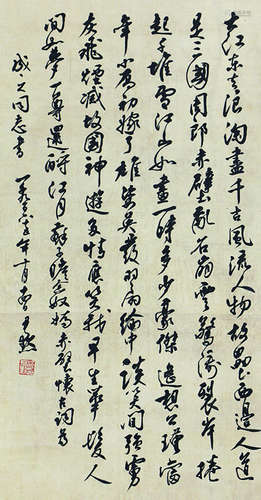 大江東去浪淘盡千古風流人物故壘西邊人道
是三國周郎赤壁亂石崩雲驚濤裂岸捲
起千堆雪江山如畫一時多少豪傑遙想公瑾當
年小喬初嫁了雄姿英發羽扇綸巾談笑間強虜
灰飛煙滅故國神遊多情應笑我早生華髮人
間如夢一尊還酹江月蘇子瞻念奴嬌赤壁懷古詞為
同志書 一九年十月 尹默